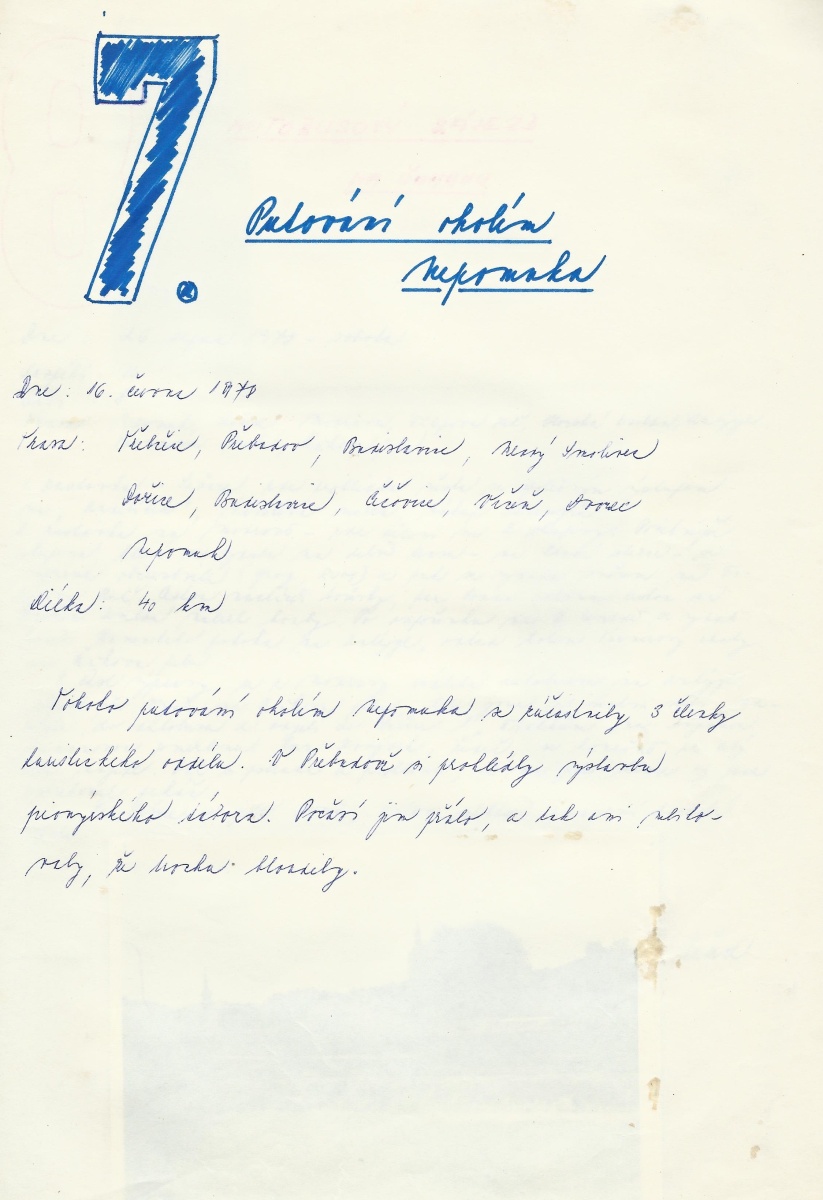 7.
Putování okolím
Nepomuka
Dne: 16. června 1978
Trasa: Třebčice, Přebudov, Budislavice, Nový Smolivec
Dožice, Budislavice, Čečovice, Vrčeň, Dvorec
Nepomuk
Délka: 40 km
Tohoto putování okolím Nepomuka se zúčastnily 3 členky
turistického oddílu. V Přebudově si prohlédly výstavbu
pionýrského tábora. Počasí jim přálo, a tak ani nelito-
valy, že trochu bloudily.